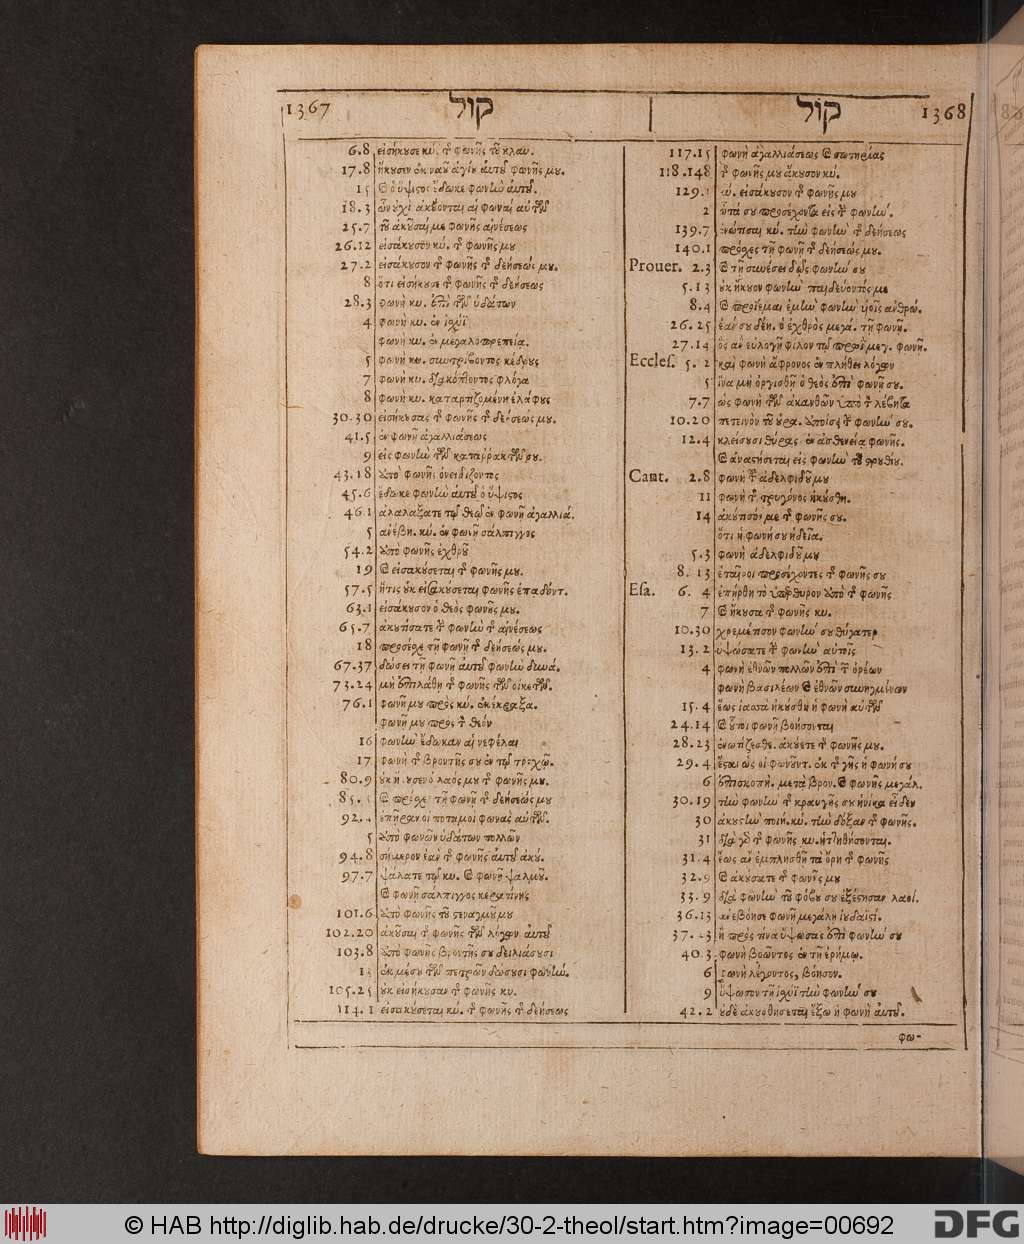 1367 קול
6.8 εἰσήκουσε κύ. τῆς φωνῆς τοῦ κλαυ.
17.8 ἤκουσεν ἐκ ναοῦ ἁγίου αὐτοῦ φωνῆς μου.
15 καὶ ὁ ὕψιστος ἔδωκε φωνὴν αὐτοῦ.
18.3 ὧν οὐχὶ ἀκούονται αἱ φωναὶ αὐτῶν
25.7 τοῦ ἀκοῦσαί με φωνῆς αἰνέσεως
26.12 εἰσάκουσον κύ. τῆς φωνῆς μου
27.2 εἰσάκουσον τῆς φωνῆς τῆς δεήσεώς μου.
8 ὅτι εἰσήκουσε τῆς φωνῆς τῆς δεήσεως
28.3 φωνὴ κυ. ἐπὶ τῶν ὑδάτων
4 φωνὴ κυ. ἐν ἰσχύϊ
φωνὴ κυ. ἐν μεγαλοπρεπεία.
5 φωνὴ κυ. συντρίβοντος κέδρους
7 φωνὴ κυ. διακόπτοντος φλόγα
8 φωνὴ κυ. καταρτιζομένη ἐλάφους
30.30 εἰσήκουσας τῆς φωνῆς τῆς δεήσεώς μου.
41.5 ἐν φωνῇ ἀγαλλιάσεως
9 εἰς φωνὴν τῶν καταρρακτῶν σου.
43.18 ἀπὸ φωνῆς ὀνειδίζοντος
45.6 ἔδωκε φωνὴν αὐτοῦ ὁ ὕψιστος
46.1 ἀλαλάξατε τῷ θεῷ ἐν φωνῇ ἀγαλλιά.
5 ἀνέβη. κύ. ἐν φωνῇ σάλπιγγος
54.2 ἀπὸ φωνῆς ἐχθροῦ
19 καὶ εἰσακούσεται τῆς φωνῆς μου.
57.5 ἥτις οὐκ εἰσακούσεται φωνῆς ἐπᾳδόντ.
63.1 εἰσάκουσον ὁ θεὸς φωνῆς μου.
65.7 ἀκουτίσατε τὴν φωνὴν τῆς αἰνέσεως
18 προσέσχε τῇ φωνῇ τῆς δεήσεώς μου.
67.37 δώσει τῇ φωνῇ αὐτοῦ φωνὴν δυνά.
73.24 μὴ ἐπιλάθῃ τῆς φωνῆς τῶν οἰκετῶν.
76.1 φωνῇ μου πρὸς κύ. ἐκέκραξα.
φωνῇ μου πρὸς τὸν θεόν
16 φωνὴν ἔδωκαν αἱ νεφέλαι
17 φωνὴ τῆς βροντῆς σου ἐν τῷ τροχῷ.
80.9 οὐκ ἤκουσεν ὁ λαός μου τῆς φωνῆς μου.
καὶ πρόσχες τῇ φωνῇ τῆς δεήσεώς μου
ἐπῆραν οἱ ποταμοὶ φωνὰς αὐτῶν.
5 ἀπὸ φωνῶν ὑδάτων πολλῶν
94.8 σήμερον ἐὰν τῆς φωνῆς αὐτοῦ ἀκού.
97.7 ψάλατε τῷ κυ. καὶ φωνῇ ψαλμοῦ.
καὶ φωνῇ σάλπιγγος κερατίνης
101.6 ἀπὸ φωνῆς τοῦ στεναγμοῦ μου
102.20 ἀκοῦσαι τῆς φωνῆς τῶν λόγων αὐτοῦ
103.8 ἀπὸ φωνῆς βροντῆς σου δειλιάσουσι
13 ἐκ μέσου τῶν πετρῶν δώσουσι φωνήν.
105.25 οὐκ εἰσήκουσαν τῆς φωνῆς κυ.
114.1 εἰσακούσεται κύ. τῆς φωνῆς τῆς δεήσεως
קול 1368
117.15 φωνὴ ἀγαλλιάσεως καὶ σωτηρίας
118.148 τῆς φωνῆς μου ἄκουσον κύ.
129.1 κύ. εἰσάκουσον τῆς φωνῆς μου
2 ὦτά σου προσέχοντα εἰς τὴν φωνήν.
139.7 ἐνώτισαι κύ. τὴν φωνὴν τῆς δεήσεως
140.1 πρόσχες τῇ φωνῇ τῆς δεήσεώς μου.
Prouer. 2.3 καὶ τῇ συνέσει δῷς φωνήν σου
5.13 οὐκ ἤκουον φωνὴν παιδεύοντός με
8.4 καὶ προΐεμαι ἐμὴν φωνὴν υἱοῖς ἀνθρώ.
26.25 ἐάν σου δέη. ὁ ἐχθρὸς μεγά. τῇ φωνῇ.
27.14 ὃς ἂν εὐλογῇ φίλον τῷ πρωῒ μεγ. φωνῇ.
Eccles. 5.2 καὶ φωνὴ ἄφρονος ἐν πλήθει λόγων
5 ἵνα μὴ ὀργισθῇ ὁ θεὸς ἐπὶ φωνῇ σου.
7.7 ὡς φωνὴ τῶν ἀκανθῶν ὑπὸ τὸν λέβητα
10.20 πετεινὸν τοῦ οὐρα. ἀποίσει τὴν φωνήν σου.
12.4 κλείσουσι θύρας ἐν ἀσθενείᾳ φωνῆς.
καὶ ἀναστήσεται εἰς φωνὴν τοῦ στρουθίου.
Cant. 2.8 φωνὴ τοῦ ἀδελφιδοῦ μου
11 φωνὴ τῆς τρυγόνος ἠκούσθη.
14 ἀκούτισόν με τῆς φωνῆς σου.
ὅτι ἡ φωνή σου ἡδεῖα.
5.3 φωνὴ ἀδελφιδοῦ μου
8.13 ἑταῖροι προσέχοντες τῆς φωνῆς σου
Esa. 6.4 ἐπήρθη τὸ ὑπέρθυρον ἀπὸ τῆς φωνῆς
7 καὶ ἤκουσα τῆς φωνῆς κυ.
10.30 χρεμέτισον φωνήν σου θύγατερ
13.2 ὑψώσατε τὴν φωνὴν αὐτοῖς
4 φωνὴ ἐθνῶν πολλῶν ἐπὶ τῶν ὀρέων
φωνὴ βασιλέων καὶ ἐθνῶν συνηγμένων
15.4 ἕως ἰασσὰ ἠκούσθη ἡ φωνὴ αὐτῶν
24.14 καὶ οὗτοι φωνῇ βοήσονται
28.23 ἐνωτίζεσθε. ἀκούετε τῆς φωνῆς μου.
29.4 ἔσται ὡς οἱ φωνοῦντ. ἐκ τῆς γῆς ἡ φωνή σου
6 ἐπισκοπὴ. μετὰ βρον. καὶ φωνῆς μεγάλ.
30.19 τὴν φωνὴν τῆς κραυγῆς σου ἡνίκα εἶδεν
30 ἀκουστὴν ποιή. κύ. τὴν δόξαν τῆς φωνῆς.
31 διὰ γὰρ τῆς φωνῆς κυ. ἡττηθήσονται.
31.4 ἕως ἂν ἐμπλησθῇ τὰ ὄρη τῆς φωνῆς
32.9 καὶ ἀκούσατε τῆς φωνῆς μου
33.9 διὰ φωνὴν τοῦ φόβου σου ἐξέστησαν λαοί.
36.13 ἀνεβόησε φωνῇ μεγάλῃ ἰουδαϊστί.
37.23 ἢ πρὸς τίνα ὕψωσας ἐπὶ φωνήν σου
40.3 φωνὴ βοῶντος ἐν τῇ ἐρήμῳ.
6 φωνὴ λέγοντος, βόησον.
9 ὕψωσον τῇ ἰσχύϊ τὴν φωνήν σου
42.2 οὐδὲ ἀκουσθήσεται ἔξω ἡ φωνὴ αὐτοῦ.
φω-
© HAB http://diglib.hab.de/drucke/30-2-theol/start.htm?image=00692
DFG